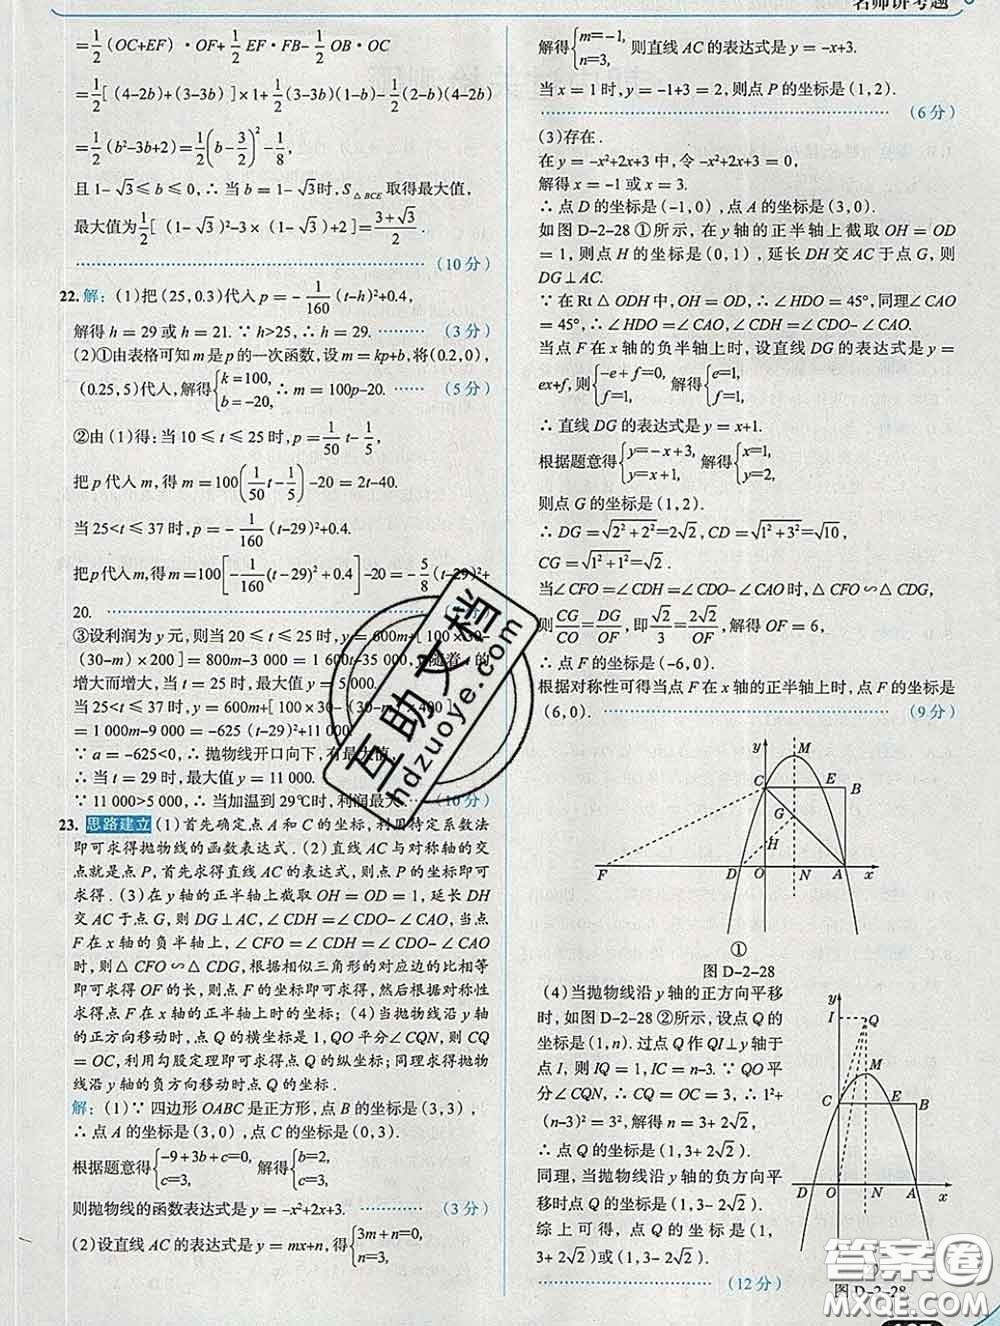 名师讲考题
=1/2(OC+EF)·OF+1/2EF·FB-1/2OB·OC
=1/2[(4-2b)+(3-3b)]×1+1/2(3-3b)(1-b)-1/2(2-b)(4-2b)
=1/2(b²-3b+2)=1/2(b-3/2)²-1/8,
且1-√3≤b≤0,∴当b=1-√3时,S△BCE取得最大值,
最大值为1/2[(1-√3)²-3×(1-√3)+2]=(3+√3)/2.
(10分)
22.解:(1)把(25,0.3)代入p=-1/160(t-h)²+0.4,
解得h=29或h=21.∵h>25,∴h=29.………(3分)
(2)①由表格可知m是p的一次函数,设m=kp+b,将(0.2,0),
(0.25,5)代入,解得{k=100, b=-20,∴m=100p-20.……(5分)
②由(1)得:当10≤t≤25时,p=1/50t-1/5,
把p代入m,得m=100(1/50t-1/5)-20=2t-40.
当25<t≤37时,p=-1/160(t-29)²+0.4.
把p代入m,得m=100[-1/160(t-29)²+0.4]-20=-5/8(t-29)²+
20.
③设利润为y元,则当20≤t≤25时,y=600m+[100×30-
(30-m)×200]=800m-3000=1600t-35000,y随着t的
增大而增大,当t=25时,最大值y=5000.
当25<t≤37时,y=600m+[100×30-(30-m)×400]
=1000m-9000=-625(t-29)²+11000.
∵a=-625<0,∴抛物线开口向下,有最大值,
∴当t=29时,最大值y=11000.
∵11000>5000,∴当加温到29℃时,利润最大.…(10分)
23.思路建立(1)首先确定点A和C的坐标,利用待定系数法
即可求得抛物线的函数表达式.(2)直线AC与对称轴的交
点就是点P,首先求得直线AC的表达式,则点P的坐标即可
求得.(3)在y轴的正半轴上截取OH=OD=1,延长DH
交AC于点G,则DG⊥AC,∠CDH=∠CDO-∠CAO,当点
F在x轴的负半轴上,∠CFO=∠CDH=∠CDO-∠CAO
时,则△CFO∽△CDG,根据相似三角形的对应边的比相等
即可求得OF的长,则点F的坐标即可求得,然后根据对称性
求得点F在x轴的正半轴上时的坐标;(4)当抛物线沿y轴
的正方向移动时,点Q的横坐标是1,QO平分∠CQN,则CQ
=OC,利用勾股定理即可求得点Q的纵坐标;同理求得抛物
线沿y轴的负方向移动时点Q的坐标.
解:(1)∵四边形OABC是正方形,点B的坐标是(3,3),
∴点A的坐标是(3,0),点C的坐标是(0,3).
根据题意得{-9+3b+c=0, c=3, 解得{b=2, c=3,
则抛物线的函数表达式是y=-x²+2x+3.………(3分)
(2)设直线AC的表达式是y=mx+n,得{3m+n=0, n=3,
解得{m=-1, n=3, 则直线AC的表达式是y=-x+3.
当x=1时,y=-1+3=2,则点P的坐标是(1,2).
(6分)
(3)存在.
在y=-x²+2x+3中,令-x²+2x+3=0,
解得x=-1或x=3.
∴点D的坐标是(-1,0),点A的坐标是(3,0).
如图D-2-28①所示,在y轴的正半轴上截取OH=OD
=1,则点H的坐标是(0,1),延长DH交AC于点G,则
DG⊥AC.
∵在Rt△ODH中,OH=OD,∴∠HDO=45°,同理∠CAO
=45°,∴∠HDO=∠CAO,∠CDH=∠CDO-∠CAO.
当点F在x轴的负半轴上时,设直线DG的表达式是y=
ex+f,则{-e+f=0, f=1, 解得{e=1, f=1,
∴直线DG的表达式是y=x+1.
根据题意得{y=-x+3, y=x+1, 解得{x=1, y=2,
则点G的坐标是(1,2).
∴DG=√(2²+2²)=2√2,CD=√(1²+3²)=√10,
CG=√(1²+1²)=√2.
当∠CFO=∠CDH=∠CDO-∠CAO时,△CFO∽△CDG,
则CG/CO=DG/OF,即√2/3=2√2/OF,解得OF=6,
∴点F的坐标是(-6,0).
根据对称性可得当点F在x轴的正半轴上时,点F的坐标是
(6,0).………(9分)
y M C E B G H F D O N A x
①
图D-2-28
(4)当抛物线沿y轴的正方向平移
时,如图D-2-28②所示,设点Q的
坐标是(1,n).过点Q作QI⊥y轴于
点I,则IQ=1,IC=n-3.∵QO平
分∠CQN,∴CQ=OC=3,∴1²+
(n-3)²=3²,解得n=3+2√2,
∴点Q的坐标是(1,3+2√2).
同理,当抛物线沿y轴的负方向平
移时点Q的坐标是(1,3-2√2).
综上可得,点Q的坐标是(1,
3+2√2)或(1,3-2√2).
(12分)
y I Q M C E B D O N A x
图D-2-28
互助文档
hdzuoye.com
答案圈
MXQE.COM